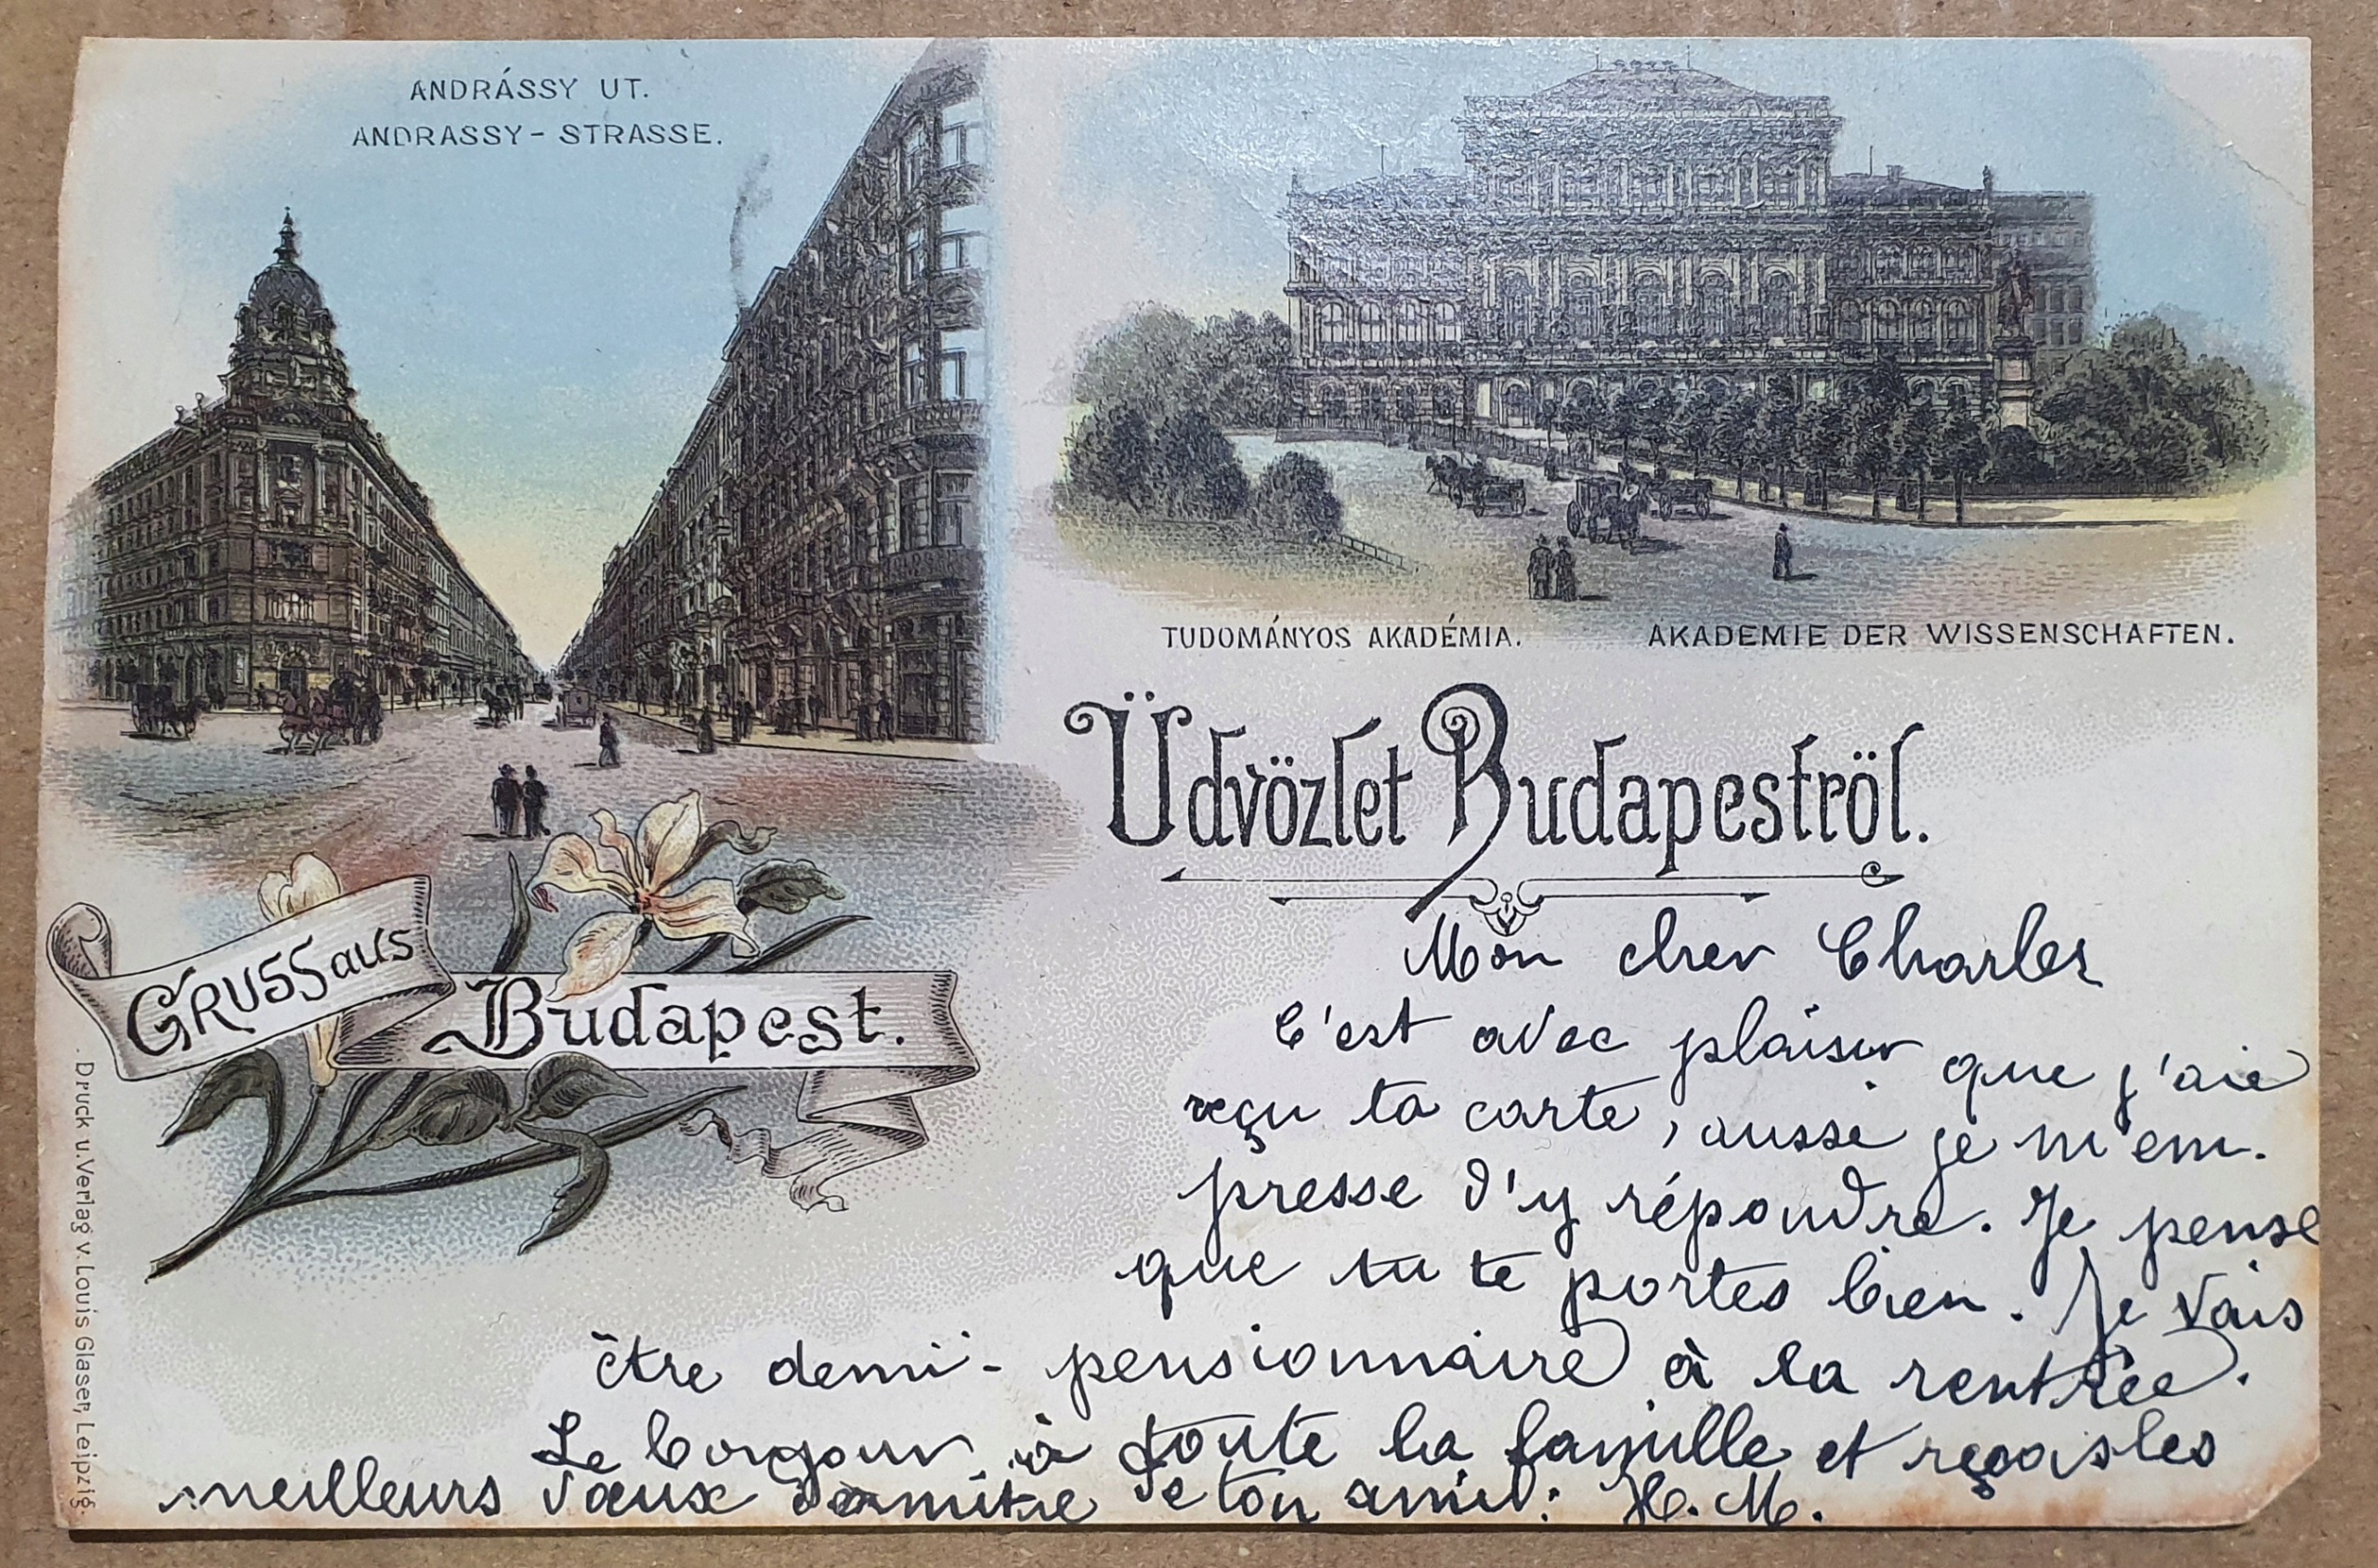 ANDRÁSSY UT.
ANDRASSY-STRASSE.
TUDOMÁNYOS AKADÉMIA. AKADEMIE DER WISSENSCHAFTEN.
Üdvözlet Budapeströl.
GRUSS aus
Budapest.
Druck u. Verlag v. Louis Glaser, Leipzig.
Mon cher Charles
C'est avec plaisir que j'aie
reçu ta carte, aussi je m'em.
presse d'y répondre. Je pense
que tu te portes bien. Je vais
être demi-pensionnaire à la rentrée.
Le bonjour à toute la famille et reçois les
meilleurs vœux de ton ami: H. M.